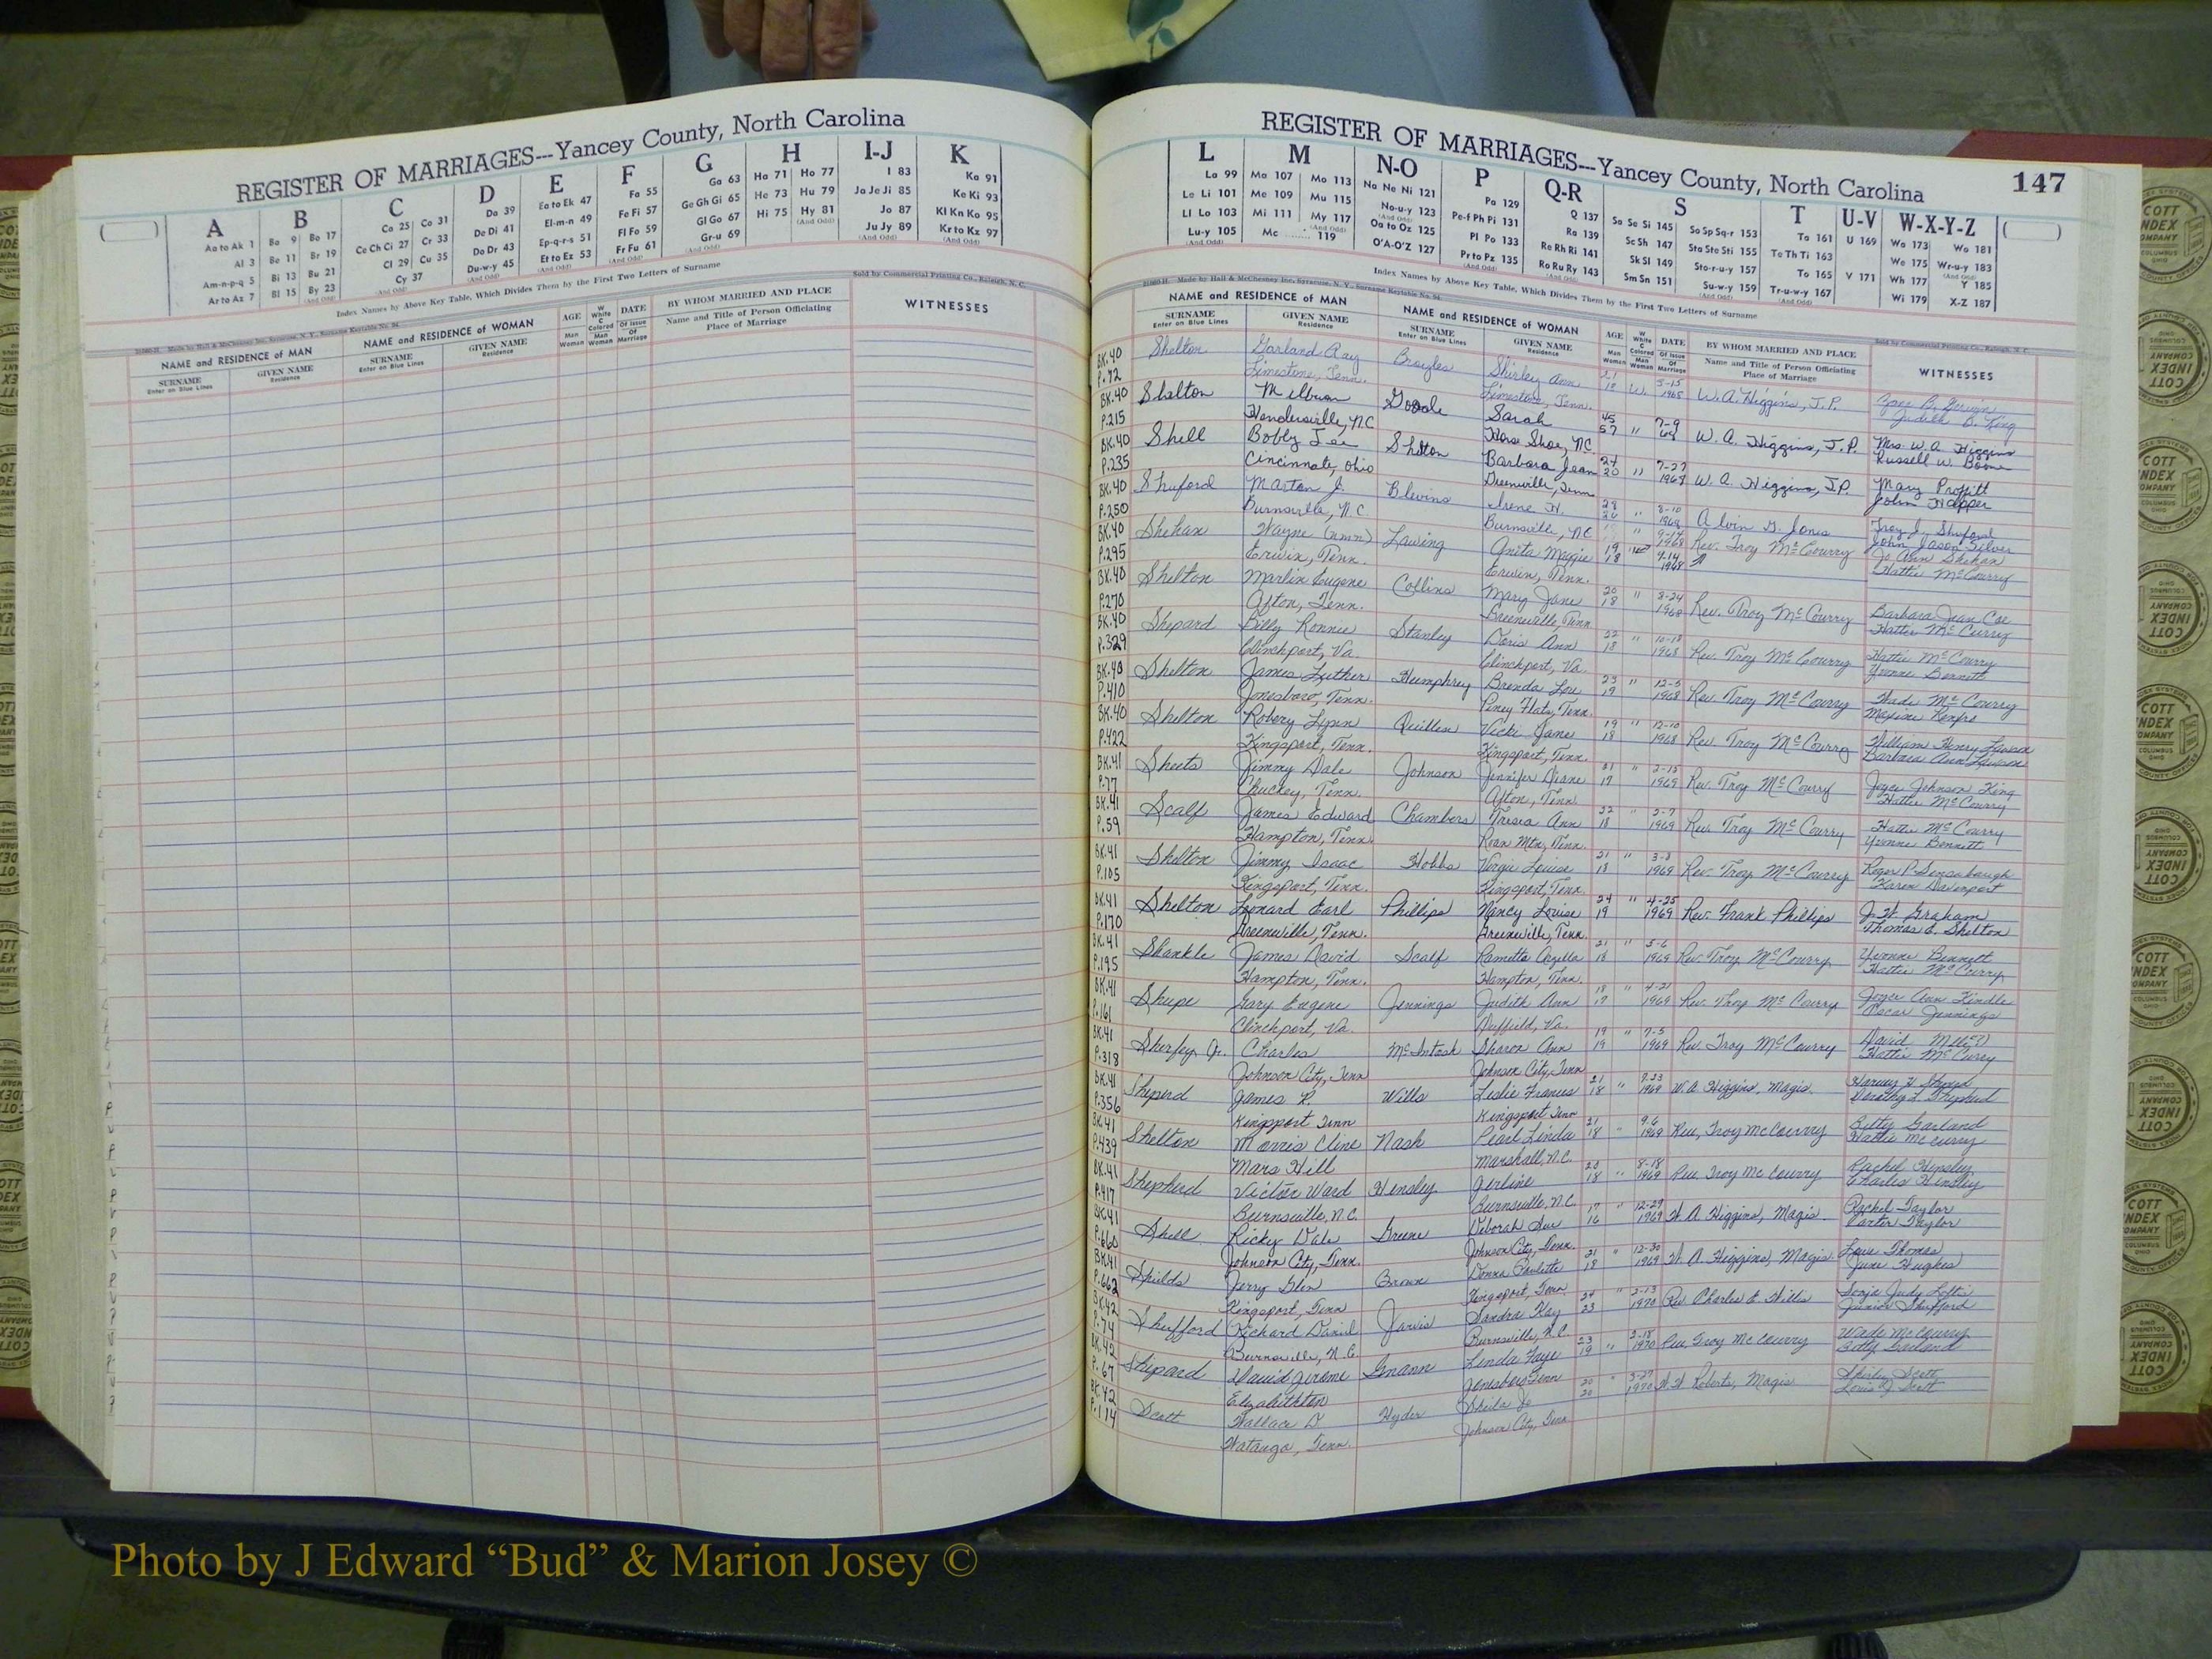 REGISTER OF MARRIAGES---Yancey County, North Carolina
A B C D E F G H I-J K
Aa to Ak 1 Ba 9 Bo 17 Ca 25 Co 31 Da 39 Ea to Ek 47 Fa 55 Ga 63 Ha 71 Ho 77 I 83 Ka 91
Al 3 Be 11 Br 19 Ce Ch Ci 27 Cr 33 De Di 41 El-m-n 49 Fe Fi 57 Ge Gh Gi 65 He 73 Hu 79 Ja Je Ji 85 Ke Ki 93
Am-n-p-q 5 Bi 13 Bu 21 Cl 29 Cu 35 Do Dr 43 Ep-q-r-s 51 Fl Fo 59 Gl Go 67 Hi 75 Hy 81 Jo 87 Kl Kn Ko 95
Ar to Az 7 Bl 15 By 23 Cy 37 Du-w-y 45 Et to Ez 53 Fr Fu 61 Gr-u 69 Ju Jy 89 Kr to Kz 97
Index Names by Above Key Table, Which Divides Them by the First Two Letters of Surname
Sold by Commercial Printing Co., Raleigh, N. C.
NAME and RESIDENCE of MAN
NAME and RESIDENCE of WOMAN
AGE
DATE
BY WHOM MARRIED AND PLACE
Name and Title of Person Officiating
Place of Marriage
WITNESSES
SURNAME
Enter on Blue Lines
GIVEN NAME
Residence
REGISTER OF MARRIAGES---Yancey County, North Carolina 147
L M N-O P Q-R S T U-V W-X-Y-Z
La 99 Ma 107 Mo 113 Na Ne Ni 121 Pa 129 Q 137 Sa Se Si 145 So Sp Sq-r 153 Ta 161 U 169 Wa 173 Wo 181
Le Li 101 Me 109 Mu 115 No-u-y 123 Pe-f Ph Pi 131 Ra 139 Sc Sh 147 Sta Ste Sti 155 Te Th Ti 163 We 175 Wr-u-y 183
Ll Lo 103 Mi 111 My 117 Oa to Oz 125 Pl Po 133 Re Rh Ri 141 Sk Sl 149 Sto-r-u-y 157 To 165 V 171 Wh 177 Y 185
Lu-y 105 Mc 119 O'A-O'Z 127 Pr to Pz 135 Ro Ru Ry 143 Sm Sn 151 Su-w-y 159 Tr-u-w-y 167 Wi 179 X-Z 187
Index Names by Above Key Table, Which Divides Them by the First Two Letters of Surname
NAME and RESIDENCE of MAN
NAME and RESIDENCE of WOMAN
AGE
DATE
BY WHOM MARRIED AND PLACE
Name and Title of Person Officiating
Place of Marriage
WITNESSES
SURNAME
Enter on Blue Lines
GIVEN NAME
Residence
BK.40 Shelton Garland Ray Broyles Shirley Ann W. W.A. Higgins, J.P.
P.72 Limestone, Tenn. Limestone, Tenn. Judith B. King
BK.40 Shelton Milburn Sarah 45 7-9 W. A. Higgins, J.P. Mrs. W. A. Higgins
P.215 Hendersonville, NC Horse Shoe, NC 57 Russell W. Boone
BK.40 Shell Bobby Joe Shelton Barbara Jean 20 7-27 1968 W. A. Higgins, J.P. Mary Proffitt
P.235 Cincinnati, Ohio Greenville, Tenn
BK.40 Shuford Marton J. Blevins Irene H. 28 8-10 1968 Alvin G. Jones Troy J. Shuford
P.250 Burnsville, N.C Burnsville, NC John Jason Silver
BK.40 Shehan Wayne (nmn) Lawing Anita Magie 19 18 9-14 1968 Rev. Troy McCourry Jo Ann Shehan
P.295 Erwin, Tenn. Erwin, Tenn. Hattie McCourry
BK.40 Shelton Marlin Eugene Collins Mary Jane 20 18 8-24 1968 Rev. Troy McCourry Barbara Jean Coe
P.270 Afton, Tenn. Greenville, Tenn Hattie McCurry
BK.40 Shepard Billy Ronnie Stanley Doris Ann 22 18 10-18 1968 Rev. Troy McCourry Hattie McCourry
P.329 Clinchport, Va. Clinchport, Va. Yvonne Bennett
BK.40 Shelton James Luther Humphrey Brenda Lou 23 19 12-5 1968 Rev. Troy McCourry Wade McCourry
P.410 Jonesboro, Tenn. Piney Flats, Tenn. Maxine Renfro
BK.40 Shelton Robery Lynn Quillen Vicki Jane 19 18 12-10 1968 Rev. Troy McCourry William Henry Lawson
P.422 Kingsport, Tenn. Kingsport, Tenn. Barbara Ann Lawson
BK.41 Sheets Jimmy Dale Johnson Jennifer Diane 21 17 2-15 1969 Rev. Troy McCourry Joyce Johnson King
P.77 Chuckey, Tenn. Afton, Tenn. Hattie McCourry
BK.41 Scalf James Edward Chambers Tresia Ann 22 18 2-7 1969 Rev. Troy McCourry Hattie McCourry
P.59 Hampton, Tenn. Roan Mtn, Tenn. Yvonne Bennett
BK.41 Shelton Jimmy Isaac Hobbs Virgie Louise 21 18 3-8 1969 Rev. Troy McCourry Roger P. Sensabaugh
P.105 Kingsport, Tenn. Kingsport, Tenn. Karen Davenport
BK.41 Shelton Leonard Earl Phillips Nancy Louise 24 19 4-25 1969 Rev. Frank Phillips J. H. Graham
P.170 Greeneville, Tenn. Greeneville, Tenn. Thomas E. Shelton
BK.41 Shankle James David Scalf Rametta 21 18 5-6 1969 Rev. Troy McCourry Yvonne Bennett
P.195 Hampton, Tenn. Hampton, Tenn. Hattie McCurry
BK.41 Shupe Gary Eugene Jennings Judith Ann 18 17 4-21 1969 Rev. Troy McCourry Joyce Ann Kindle
P.161 Clinchport, Va. Duffield, Va. Oscar Jennings
BK.41 Sherfey, Jr. Charles McIntosh Sharon Ann 19 19 7-5 1969 Rev. Troy McCourry David
P.318 Johnson City, Tenn Johnson City, Tenn Hattie McCurry
BK.41 Sheperd James R. Wills Leslie Frances 21 18 7-23 1969 W. A. Higgins, Magis.
P.356 Kingsport Tenn Kingsport Tenn Dorothy L. Shepherd
BK.41 Shelton Morris Cline Nash Pearl Linda 21 18 9-6 1969 Rev, Troy McCourry Betty Garland
P.439 Mars Hill Marshall, N.C. Hattie McCurry
BK.41 Shepherd Victor Ward Hensley Gerline 18 8-18 1969 Rev Troy McCourry Rachel Hensley
P.417 Burnsville, N.C. Burnsville, N.C. Charles Hensley
BK.41 Shell Ricky Dale Greene Deborah Sue 17 16 12-29 1969 W. A. Higgins, Magis. Rachel Taylor
P.660 Johnson City, Tenn. Johnson City, Tenn. Carter Taylor
BK.41 Shields Jerry Glen Brown Donna Paulette 21 18 12-30 1969 W. A. Higgins, Magis. Thomas
P.662 Kingsport, Tenn Kingsport, Tenn June Hughes
BK.42 Shufford Richard Daniel Jarvis Sandra Kay 24 23 2-13 1970 Rev. Charles E. Wills Sonja Judy Loftis
P.74 Burnsville, N.C. Burnsville, N.C. Junior Shufford
BK.42 Shepard David Jerome Gmann Linda Faye 23 19 2-18 1970 Rev Troy McCourry Wade McCourry
P.67 Elizabethton Jonesboro Tenn Betty Garland
BK.42 Scott Wallace D. Hyder Sheila Jo 20 20 3-27 1970 Roberts, Magis Shirley Scott
P.114 Watauga, Tenn. Johnson City, Tenn Louis J. Scott
COTT
INDEX
COMPANY
COLUMBUS
OHIO
Photo by J Edward “Bud” & Marion Josey ©